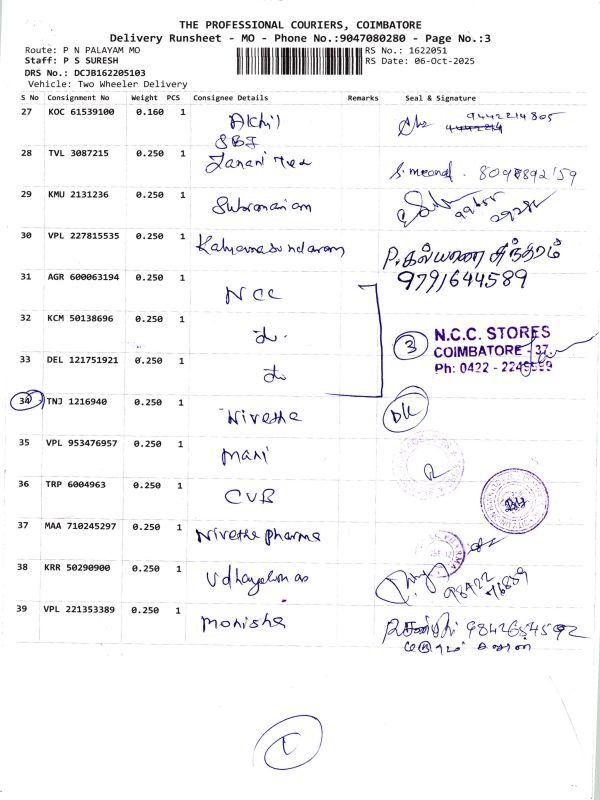 THE PROFESSIONAL COURIERS, COIMBATORE
Delivery Runsheet - MO - Phone No.:9047080280 - Page No.:3
Route: P N PALAYAM MO
RS No.: 1622051
Staff: P S SURESH
RS Date: 06-Oct-2025
DRS No.: DCJB162205103
Vehicle: Two Wheeler Delivery
S No Consignment No Weight PCS Consignee Details Remarks Seal & Signature
27 KOC 61539100 0.160 1 Akhil 9442214805
SBI
28 TVL 3087215 0.250 1 Janani 8098892159
29 KMU 2131236 0.250 1 Subramaniam
30 VPL 227815535 0.250 1 Kalyanasundaram P.கல்யாண சுந்தரம்
9791644589
31 AGR 600063194 0.250 1 NCC
32 KCM 50138696 0.250 1 3 N.C.C. STORES
COIMBATORE - 37.
33 DEL 121751921 0.250 1 Ph: 0422 -
34 TNJ 1216940 0.250 1 Nivetha
35 VPL 953476957 0.250 1 Mani
36 TRP 6004963 0.250 1 CVB
37 MAA 710245297 0.250 1 Nivetha pharma
38 KRR 50290900 0.250 1 98422
39 VPL 221353389 0.250 1 Monisha 9842654592